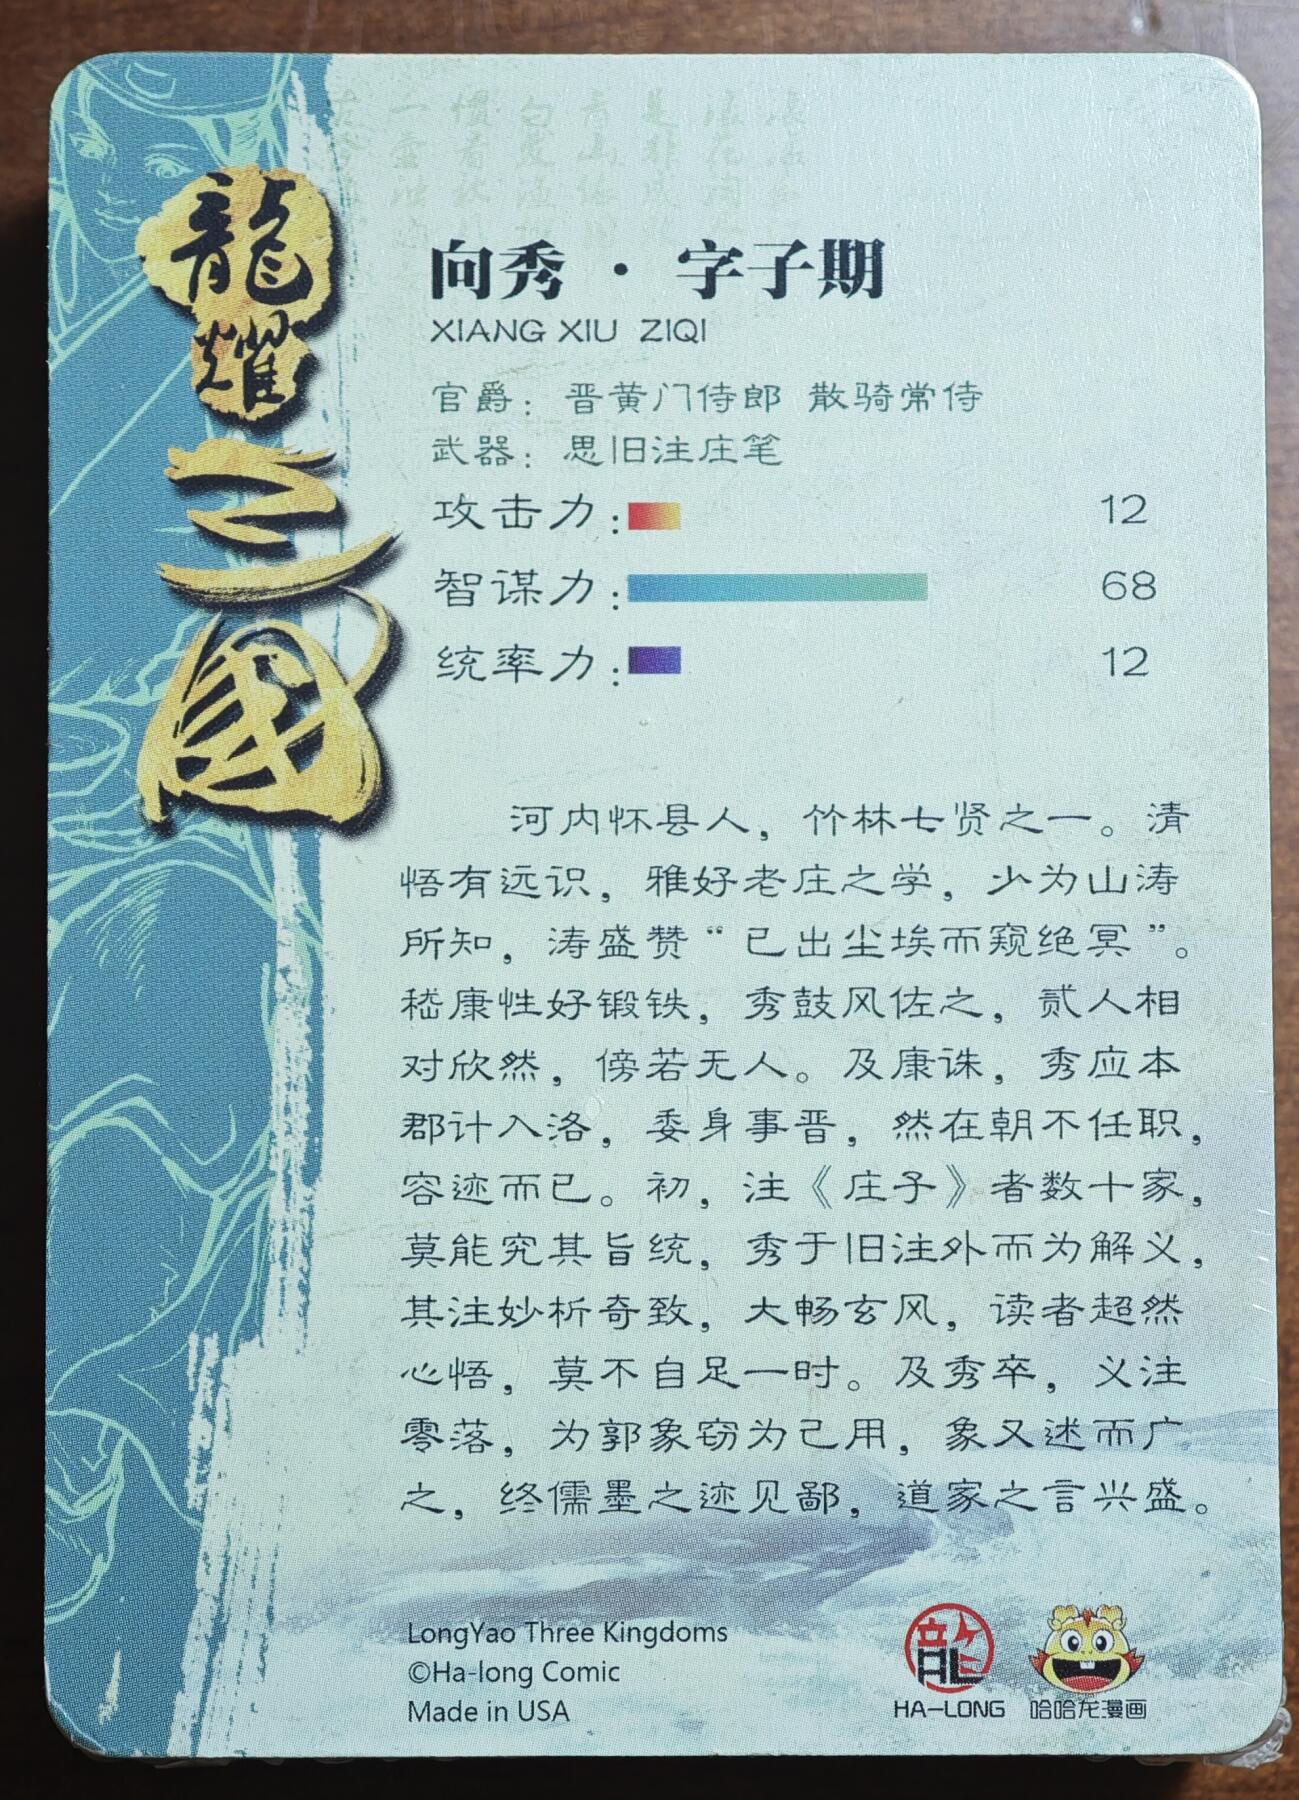 龍耀三國
向秀·字子期
XIANG XIU ZIQI
官爵：晋黄门侍郎 散骑常侍
武器：思旧注庄笔
攻击力： 12
智谋力： 68
统率力： 12
河内怀县人，竹林七贤之一。清
悟有远识，雅好老庄之学，少为山涛
所知，涛盛赞“已出尘埃而窥绝冥”。
嵇康性好锻铁，秀鼓风佐之，贰人相
对欣然，傍若无人。及康诛，秀应本
郡计入洛，委身事晋，然在朝不任职，
容迹而已。初，注《庄子》者数十家，
莫能究其旨统，秀于旧注外而为解义，
其注妙析奇致，大畅玄风，读者超然
心悟，莫不自足一时。及秀卒，义注
零落，为郭象窃为己用，象又述而广
之，终儒墨之迹见鄙，道家之言兴盛。
LongYao Three Kingdoms
©Ha-long Comic
Made in USA
HA-LONG
哈哈龙漫画